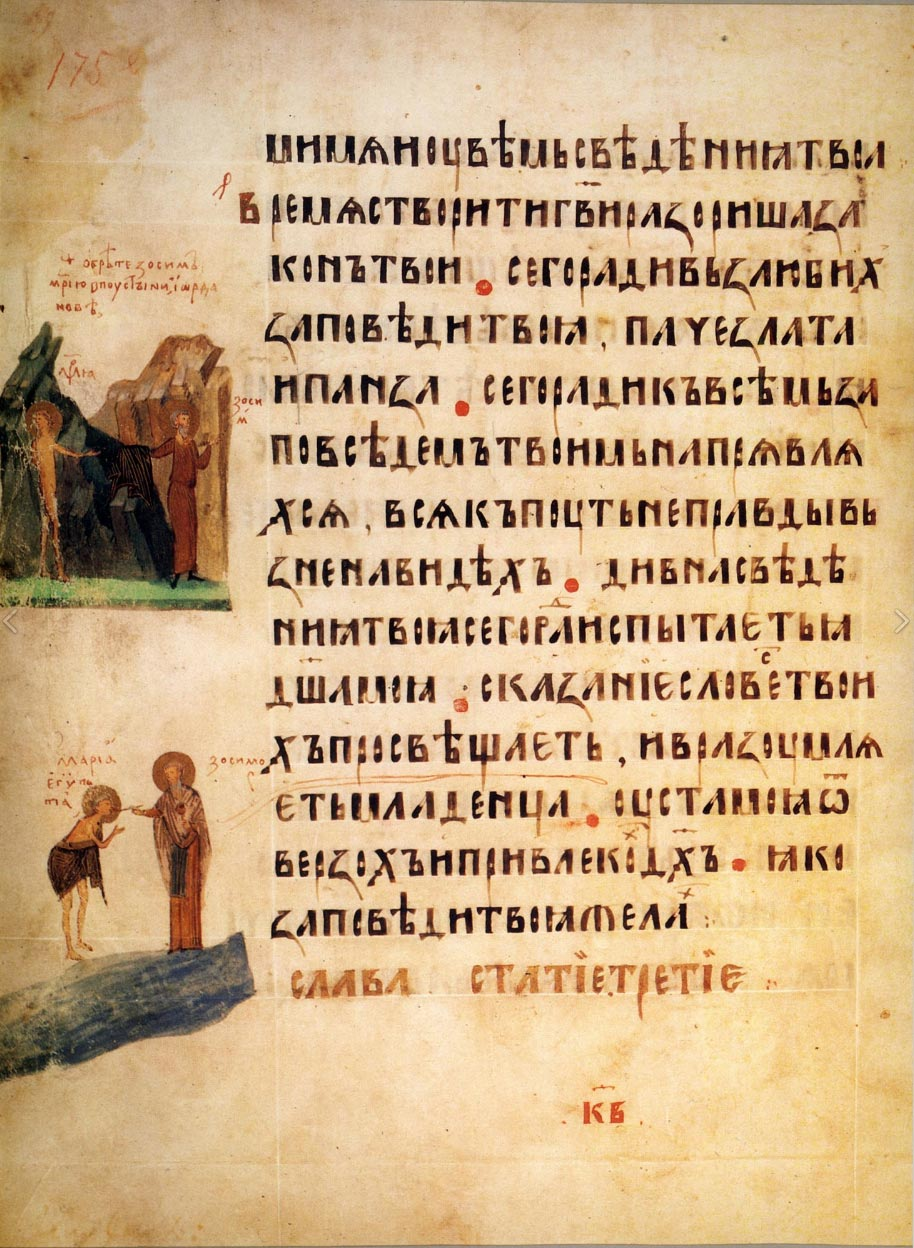 175
шимѧиоувѣмьсвѣдѣниꙗтвоꙗ
времѧстворитигв҃иразоришаза
конътвои . сегорадивьзлюбих
заповѣдитвоꙗ , паѵезлата
ипанза . сегорадикъвсѣмьза
повѣдемътвоимьнапрѧвлѧ
хсѧ , всѧкъпоутьнеправдывь
зненавидѣхъ . дивнасвѣдѣ
ниꙗтвоꙗсегораⷣиспытаєтьꙗ
дш҃амоꙗ . сказанїєсловеⷭтвои
хъпросвѣщаєть , ивразоумлѧ
єтьмладенца . оустамоꙗѿ
верзохъипривлекоⷯдх҃ъ . ꙗко
заповѣдитвоꙗжелаⷯ .
слава статїєтретїє
к҃в
ѡбрѣтезосимъ
мр҃їюѹпоустыни,їѡрда
новѣ,
зоси
м
марїа
єгѵпь
тѧ
зосимо